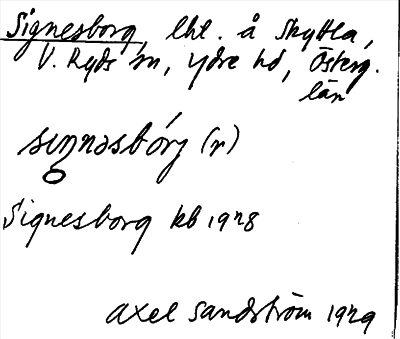 Signesborg, lht. å Skytta,
V. Ryds sn, Ydre hd, Österg.
län
(r)
Signesborg kb 1928
Axel Sandström 1929